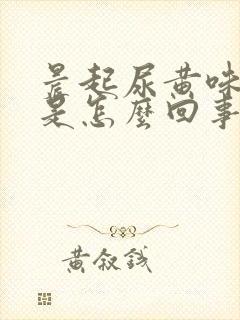 晨起尿黄味
是怎麼回事
黄叙钱